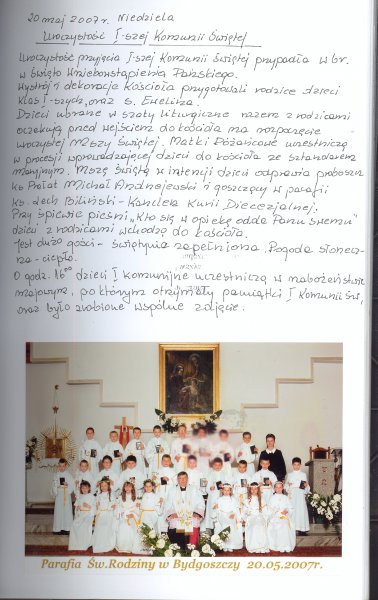 20 maj 2007r. Niedziela
Uroczystość I-szej Komunii Świętej
Uroczystość przyjęcia I-szej Komunii Świętej przypadła w br.
w Święto Wniebowstąpienia Pańskiego.
Wystrój i dekoracje Kościoła przygotowali rodzice dzieci
klas I-szych, oraz s. Ewelina.
Dzieci ubrane w szaty liturgiczne razem z rodzicami
oczekują przed wejściem do kościoła na rozpoczęcie
uroczystej Mszy Świętej. Matki Różańcowe uczestniczą
w procesji wprowadzającej dzieci do kościoła ze sztandarem
maryjnym. Mszę Świętą w intencji dzieci odprawia proboszcz
ks. Prałat Michał Andrzejewski i goszczący w parafii
ks. Lech Biliński - Kanclerz Kurii Diecezjalnej.
Przy śpiewie pieśni „Kto się w opiekę odda Panu swemu"
dzieci z rodzicami wchodzą do kościoła.
Jest dużo gości - świątynia zapełniona. Pogoda słonecz-
na - ciepło.
O godz. 16⁰⁰ dzieci I Komunijne uczestniczą w nabożeństwie
majowym, po którym otrzymały pamiątki I Komunii Św,
oraz było zrobione wspólne zdjęcie.
Parafia Św.Rodziny w Bydgoszczy 20.05.2007r.